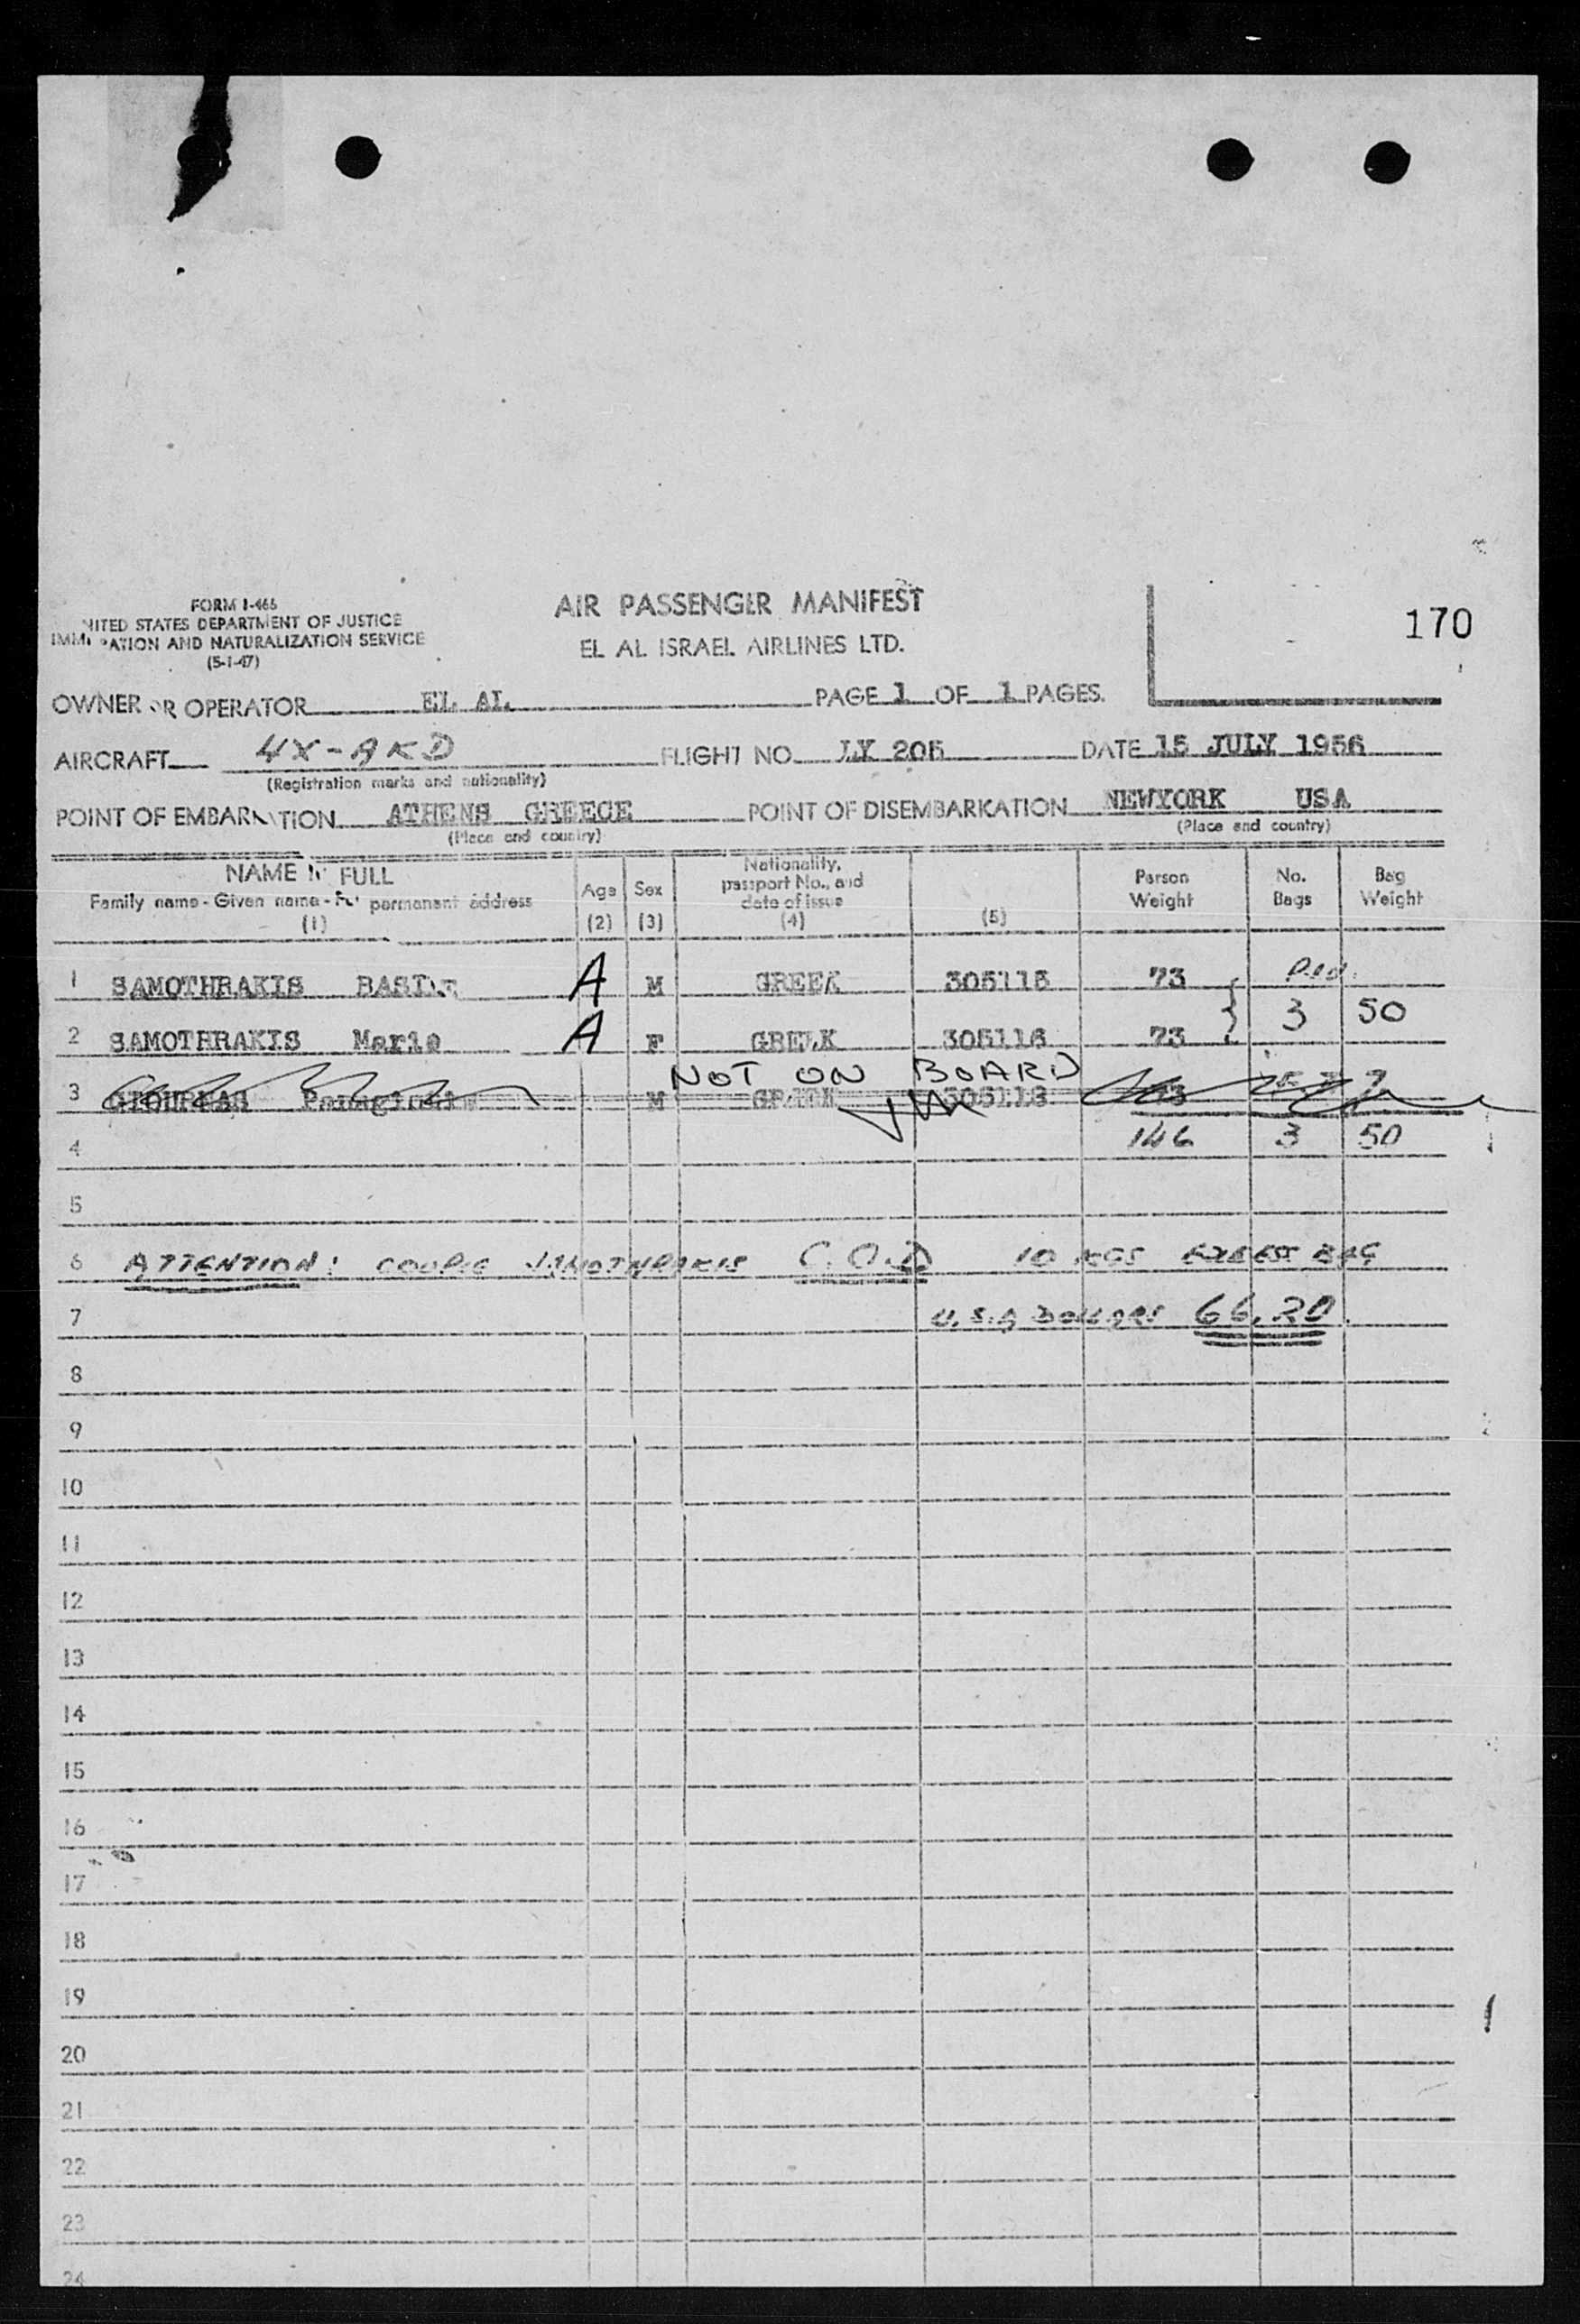 170
FORM I-466
UNITED STATES DEPARTMENT OF JUSTICE
IMMIGRATION AND NATURALIZATION SERVICE
(5-1-47)
AIR PASSENGER MANIFEST
EL AL ISRAEL AIRLINES LTD.
OWNER OR OPERATOR EL AL PAGE 1 OF 1 PAGES.
AIRCRAFT 4X-AKD FLIGHT NO. LY 205 DATE 15 JULY 1956
(Registration marks and nationality)
POINT OF EMBARKATION ATHENS GREECE POINT OF DISEMBARKATION NEWYORK USA
(Place and country) (Place and country)
NAME IN FULL Age Sex Nationality, passport No., and date of issue Person Weight No. Bags Bag Weight
Family name - Given name - permanent address
(1) (2) (3) (4) (5)
1 SAMOTHRAKIS A M GREEK 305115 73
2 SAMOTHRAKIS Marie A F GREEK 305116 73 3 50
NOT ON BOARD
3 M
4 146 3 50
5
6 ATTENTION: COUPLE SAMOTHRAKIS C.O.D 10 KGS EXCESS BAG
7 U.S.A DOLLARS 66.20
8
9
10
11
12
13
14
15
16
17
18
19
20
21
22
23
24